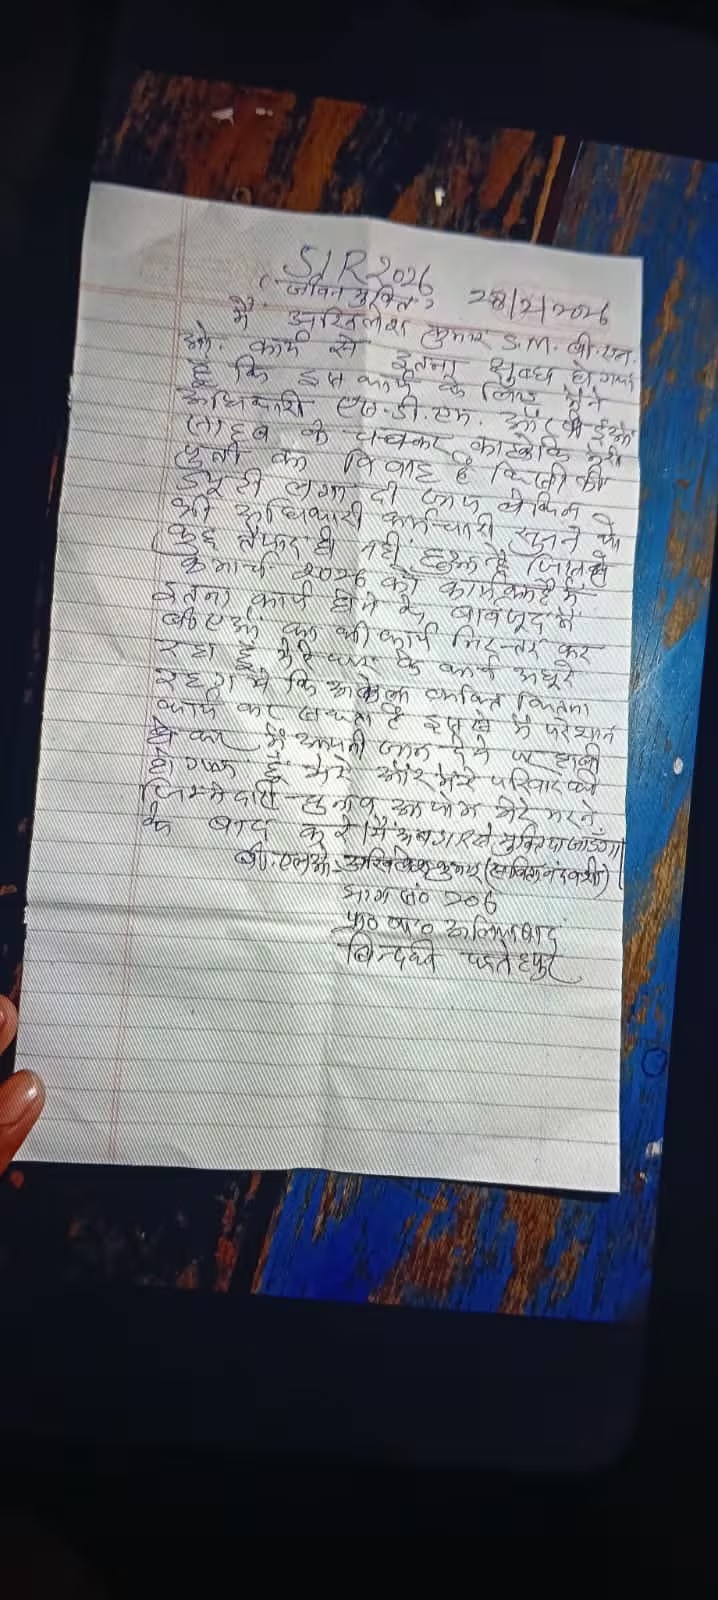 SIR 2026
(जीवन मुक्ति) 28/2/2026
मैं अखिलेश कुमार S.M. बी.एल.
ओ. कार्य से इतना क्षुब्ध हो गया
हूँ कि इस कार्य के लिए मैंने
अधिकारी एस.डी.एम. और
साहब के चक्कर काटे कि मेरी
पुत्री का विवाह है किसी की
ड्यूटी लगा दी जाय लेकिन
भी अधिकारी कर्मचारी सुनने को
कुछ तैयार ही नहीं हुआ है जिसके
8 मार्च 2026 को कार्यक्रम है मैं
इतना कार्य होने के बावजूद मैं
बीएलओ का भी कार्य निरन्तर कर
रहा हूँ मेरे घर के कार्य अधूरे
रह गये कि अकेला व्यक्ति कितना
कार्य कर सकता है मैं परेशान
हो कर मैं अपनी जान देने पर हावी
हो गया हूँ मेरे और मेरे परिवार की
जिम्मेदारी चुनाव आयोग मेरे मरने
के बाद करे। मैं अब मुक्ति पा जाऊँगा।
बी.एलओ. अखिलेश कुमार
भाग सं० 206
प्रा० पा० अलियाबाद
बिन्दकी फतेहपुर